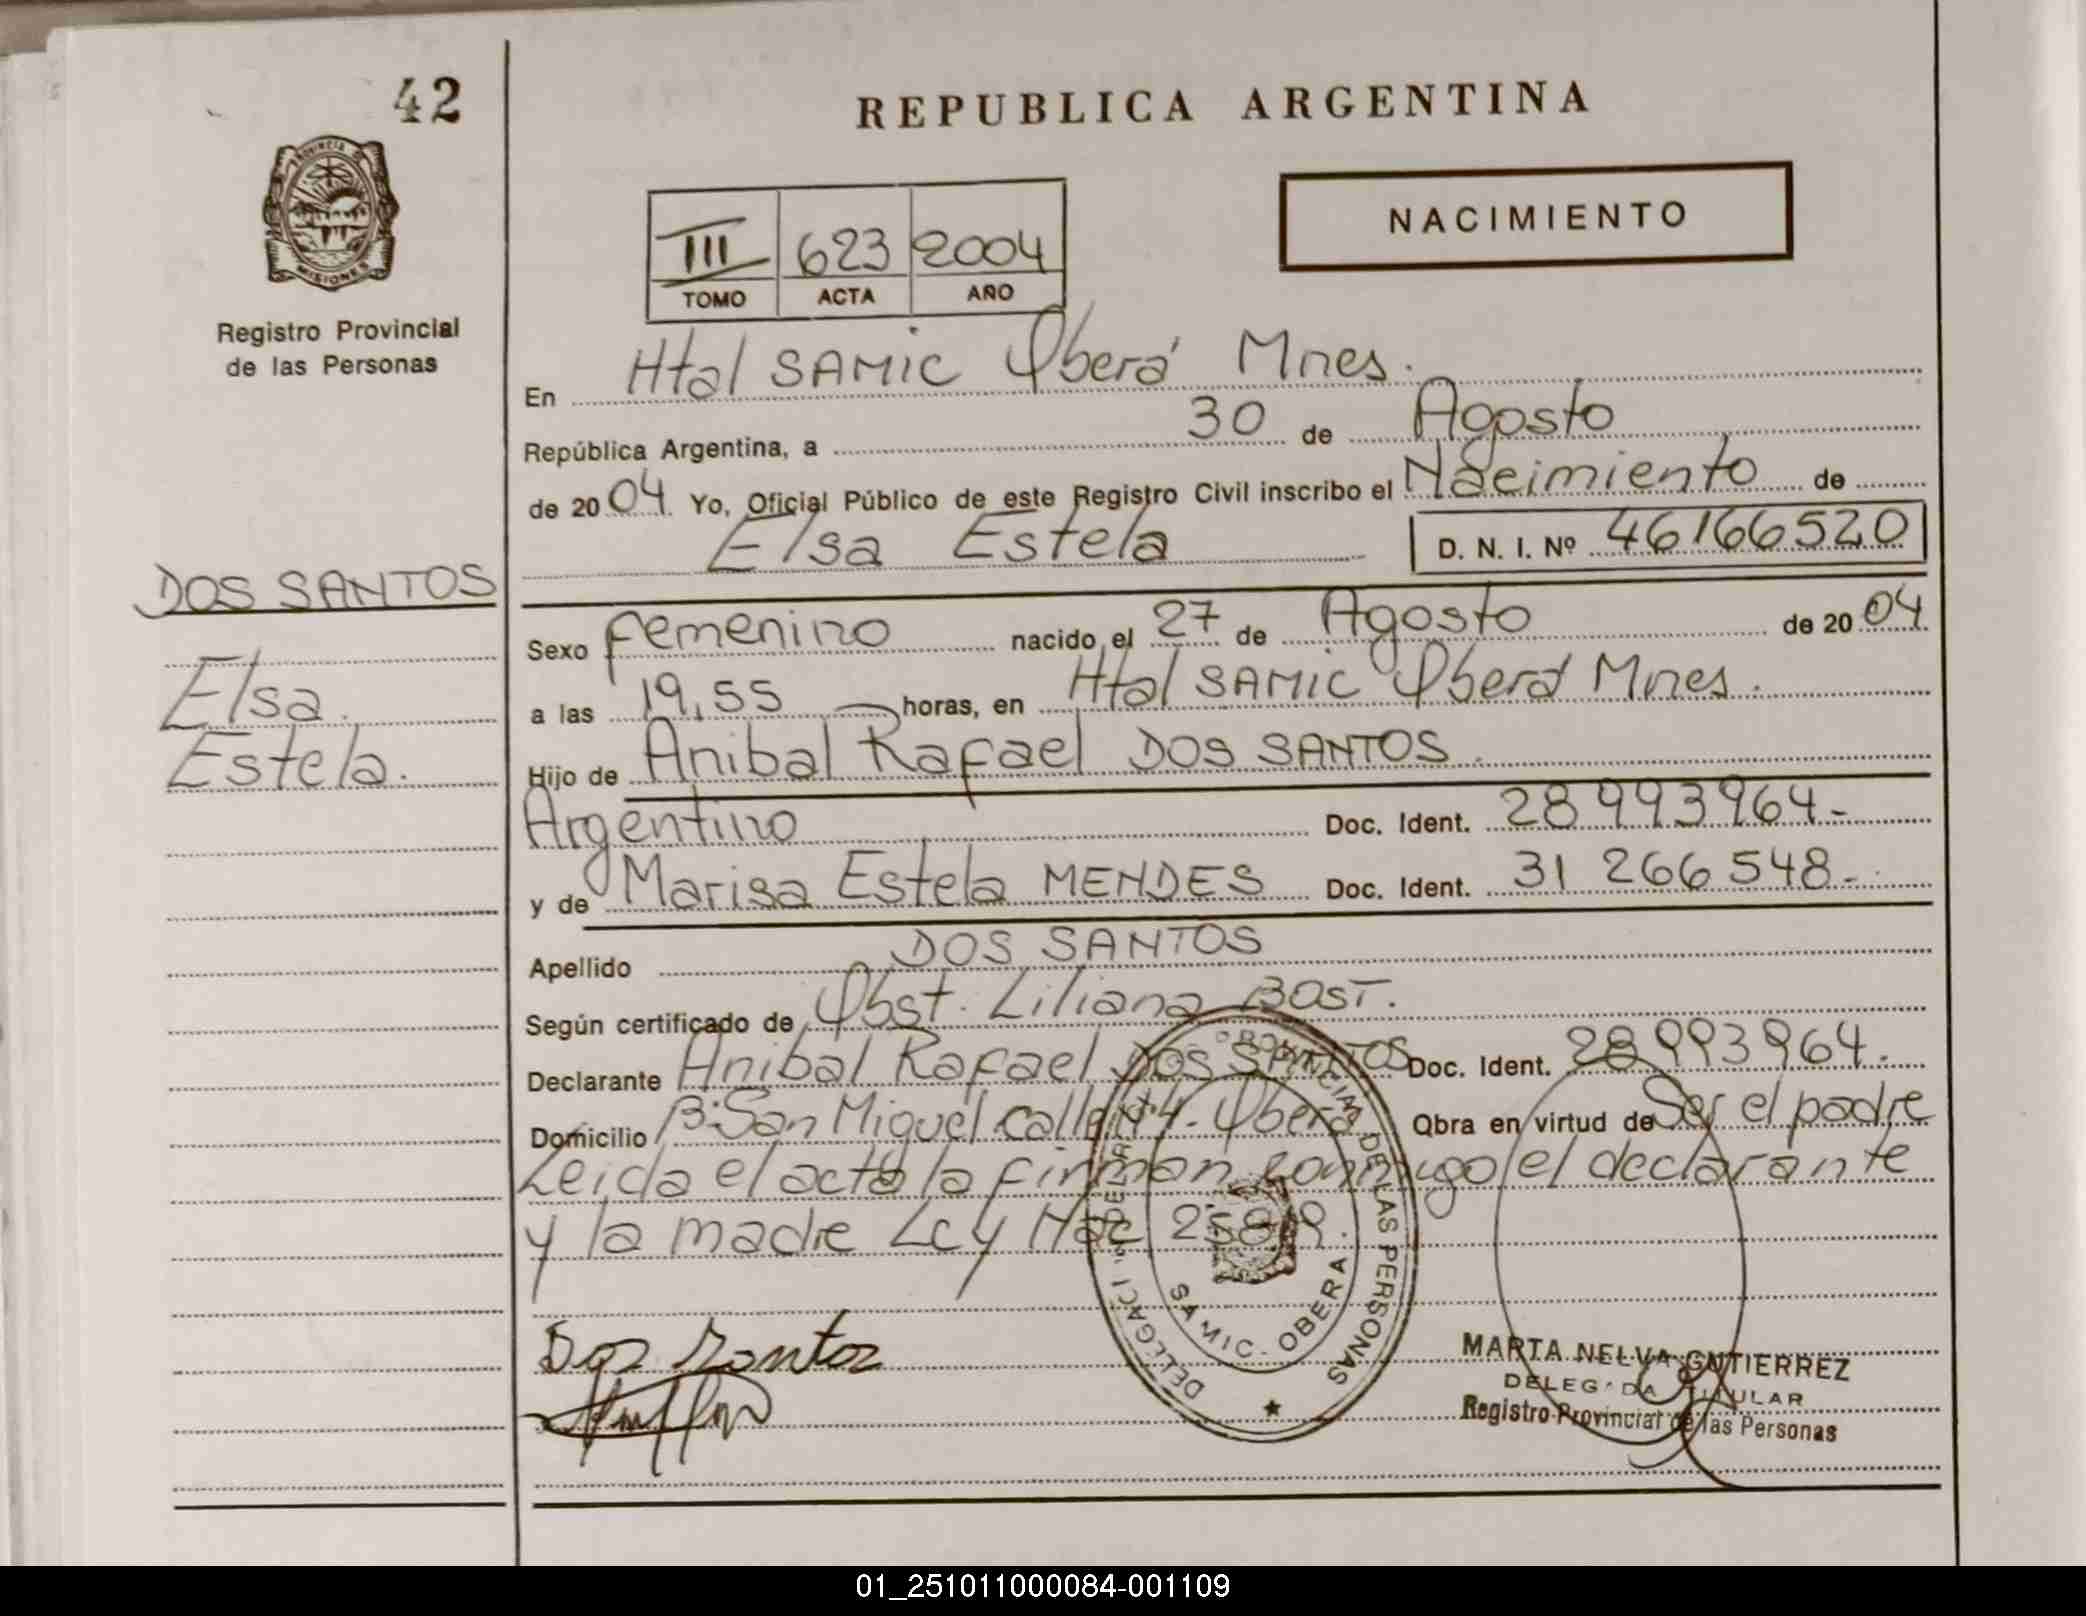 42
REPUBLICA ARGENTINA
PROVINCIA DE
MISIONES
Registro Provincial
de las Personas
NACIMIENTO
III 623 2004
TOMO ACTA AÑO
En Htal SAMIC Oberá Mnes.
República Argentina, a 30 de Agosto
de 2004. Yo, Oficial Público de este Registro Civil inscribo el Nacimiento de
Elsa Estela D. N. I. Nº 46166520
DOS SANTOS
Elsa
Estela.
Sexo Femenino nacido el 27 de Agosto de 2004
a las 19,55 horas, en Htal SAMIC Oberá Mnes.
Hijo de Anibal Rafael DOS SANTOS
Argentino Doc. Ident. 28993964-
y de Marisa Estela MENDES Doc. Ident. 31 266 548-
Apellido DOS SANTOS
Según certificado de Obst. Liliana BOST.
Declarante Anibal Rafael DOS SANTOS Doc. Ident. 28993964-
Domicilio B: San Miguel calle Nº4- Oberá Obra en virtud de Ser el padre
Leida el acta la firman conmigo el declarante
y la madre Ley Nac
SAMIC - OBERA
Dos Santos
MARTA NELVA GUTIERREZ
DELEGADA TITULAR
Registro Provincial de las Personas
01_251011000084-001109